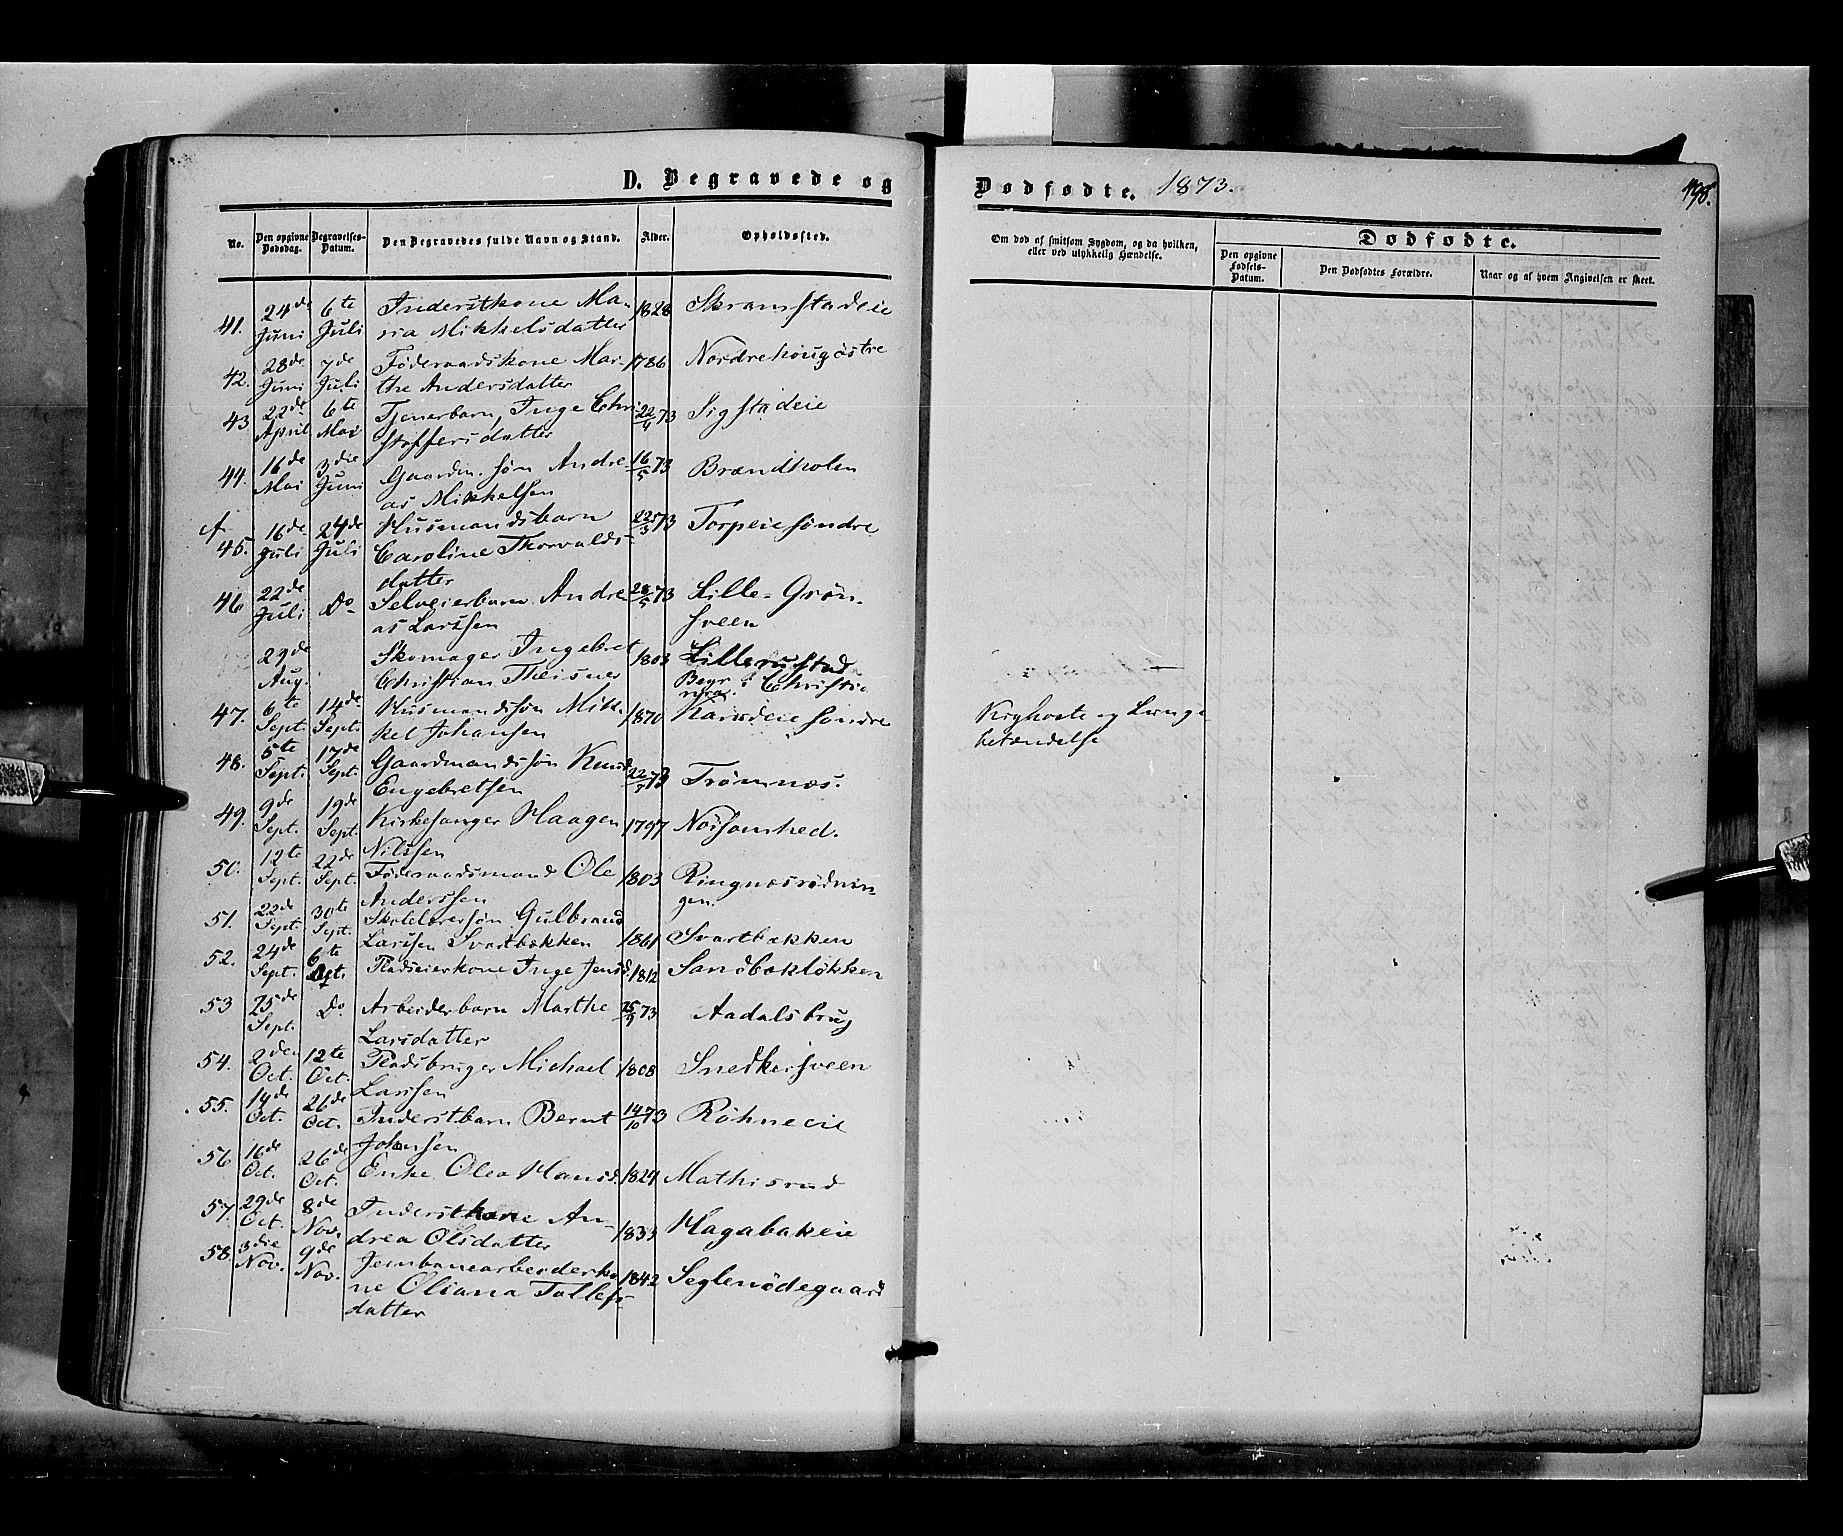 D. Begravede og
No.
Den opgivne Dødsdag.
Begravelses-Datum.
Den Begravedes fulde Navn og Stand.
Alder.
Opholdssted.
41. 24de Juni 6te Juli Inderstkone Ma-
ria Mikkelsdatter 1828 Skramstadeie
42. 28de Juni 7de Juli Føderaadskone Mar-
the Andersdatter 1786 Nordrehougöstre
43 22de April 6te Mai Tjenerbarn, Inge Chri
stoffersdatter 22/4 73 Sigstadeie
44. 16de Mai 3die Juni Gaardm. søn Andre
as Mikkelsen 16/5 73 Brændholen
45. 16de Juli 24de Juli Husmandsbarn
Caroline Thorvalds-
datter 22/3 73 Torpeie søndre
46 22de Juli Do Selveierbarn Andre
as Larssen 28/5 73 Lille-Grøn-
sveen
29de Aug. Skomager Ingebret
Christian Theisner 1803 Lillerustad
Begr. i Christia
nia.
47. 6te Sept. 14de Sept. Husmandssøn Mik-
kel Johansen 1870 Karsdeie søndre
48. 5te Sept. 17de Sept. Gaardmandssøn Knud
Engebretsen 22/7 73 Trømnæs.
49. 9de Sept. 19de Sept. Kirkesanger Haagen
Nilssen 1797 Nøisomhed.
50. 12te Sept. 22de Sept. Føderaadsmand Ole
Anderssen 1803 Ringnæsrødnin-
gen.
51. 22de Sept. 30te Sept. Skolelærersøn Gulbrand
Larssen Svartbækken 1861 Svartbækken
52. 24de Sept. 6te Oct. Pladseierkone Inge Jensd. 1812 Sandbækløkken
53 25de Sept. Do Arbeiderbarn Marthe
Larsdatter 25/9 73 Aadalsbrug
54. 2den Oct. 12te Oct. Pladsbruger Michael
Larssen 1808 Snedkersveen
55. 14de Oct. 26de Oct. Inderstbarn Bernt
Johansen 14/10 73 Røhneeie
56 16de Oct. 26de Oct. Enke Olea Hansd. 1824 Mathisrud
57. 29de Oct. 8de Nov. Inderstkone An-
drea Olsdatter 1833 Hagabakeie
58. 3die Nov. 9de Nov. Jernbanearbeiderko
ne Oliana Tollefs-
datter 1842 Seglenødegaard
Dødfødte. 1873.
498.
Om død af smitsom Sygdom, og da hvilken,
eller ved ulykkelig Hændelse.
Dødfødte.
Den opgivne Fødsels-Datum.
Den Dødfødtes Forældre.
Naar og af hvem Angivelsen er skeet.
Kighoste og Lunge
betændelse